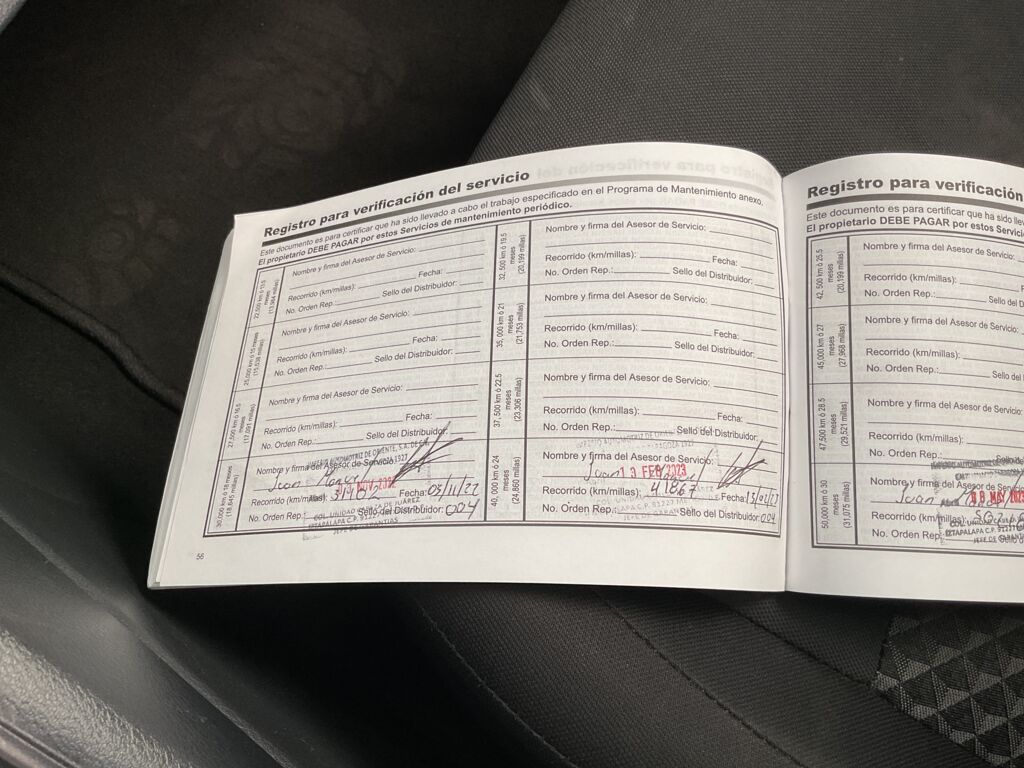 Registro para verificación del servicio
Este documento es para certificar que ha sido llevado a cabo el trabajo especificado en el Programa de Mantenimiento anexo.
El propietario DEBE PAGAR por estos Servicios de mantenimiento periódico.
Nombre y firma del Asesor de Servicio:
Recorrido (km/millas): Fecha:
No. Orden Rep.: Sello del Distribuidor:
25,000 km ó 15 meses
Nombre y firma del Asesor de Servicio:
Recorrido (km/millas): Fecha:
No. Orden Rep.: Sello del Distribuidor:
27,500 km ó 16.5 meses
(17,091 millas)
Nombre y firma del Asesor de Servicio:
Recorrido (km/millas): Fecha:
No. Orden Rep.: Sello del Distribuidor:
30,000 km ó 18 meses
(18,645 millas)
Nombre y firma del Asesor de Servicio:
Juan
Recorrido (km/millas): Fecha: 05/11/22
No. Orden Rep.: Sello del Distribuidor: 004
IZTAPALAPA C.P.
JEFE DE GARANTIAS
56
32,500 km ó 19.5
meses
(20,199 millas)
Nombre y firma del Asesor de Servicio:
Recorrido (km/millas): Fecha:
No. Orden Rep.: Sello del Distribuidor:
35,000 km ó 21
meses
(21,753 millas)
Nombre y firma del Asesor de Servicio:
Recorrido (km/millas): Fecha:
No. Orden Rep.: Sello del Distribuidor:
37,500 km ó 22.5
meses
(23,306 millas)
Nombre y firma del Asesor de Servicio:
Recorrido (km/millas): Fecha:
No. Orden Rep.: Sello del Distribuidor:
40,000 km ó 24
meses
(24,860 millas)
Nombre y firma del Asesor de Servicio:
Juan 13 FEB 2023
Recorrido (km/millas): 41867 Fecha:
No. Orden Rep.: Sello del Distribuidor: 004
Registro para verificación
Este documento es para certificar que ha sido
El propietario DEBE PAGAR por estos
42,500 km ó 25.5
meses
(20,199 millas)
Nombre y firma del Asesor de Servicio:
Recorrido (km/millas):
No. Orden Rep.: Sello
45,000 km ó 27
meses
(27,968 millas)
Nombre y firma del Asesor de Servicio:
Recorrido (km/millas):
No. Orden Rep.: Sello del
47,500 km ó 28.5
meses
(29,521 millas)
Nombre y firma del Asesor de Servicio:
Recorrido (km/millas):
No. Orden Rep.:
50,000 km ó 30
meses
(31,075 millas)
Nombre y firma del Asesor de
Juan MAY 2023
Recorrido (km/millas):
No. Orden Rep.
IZTAPALAPA C.P.